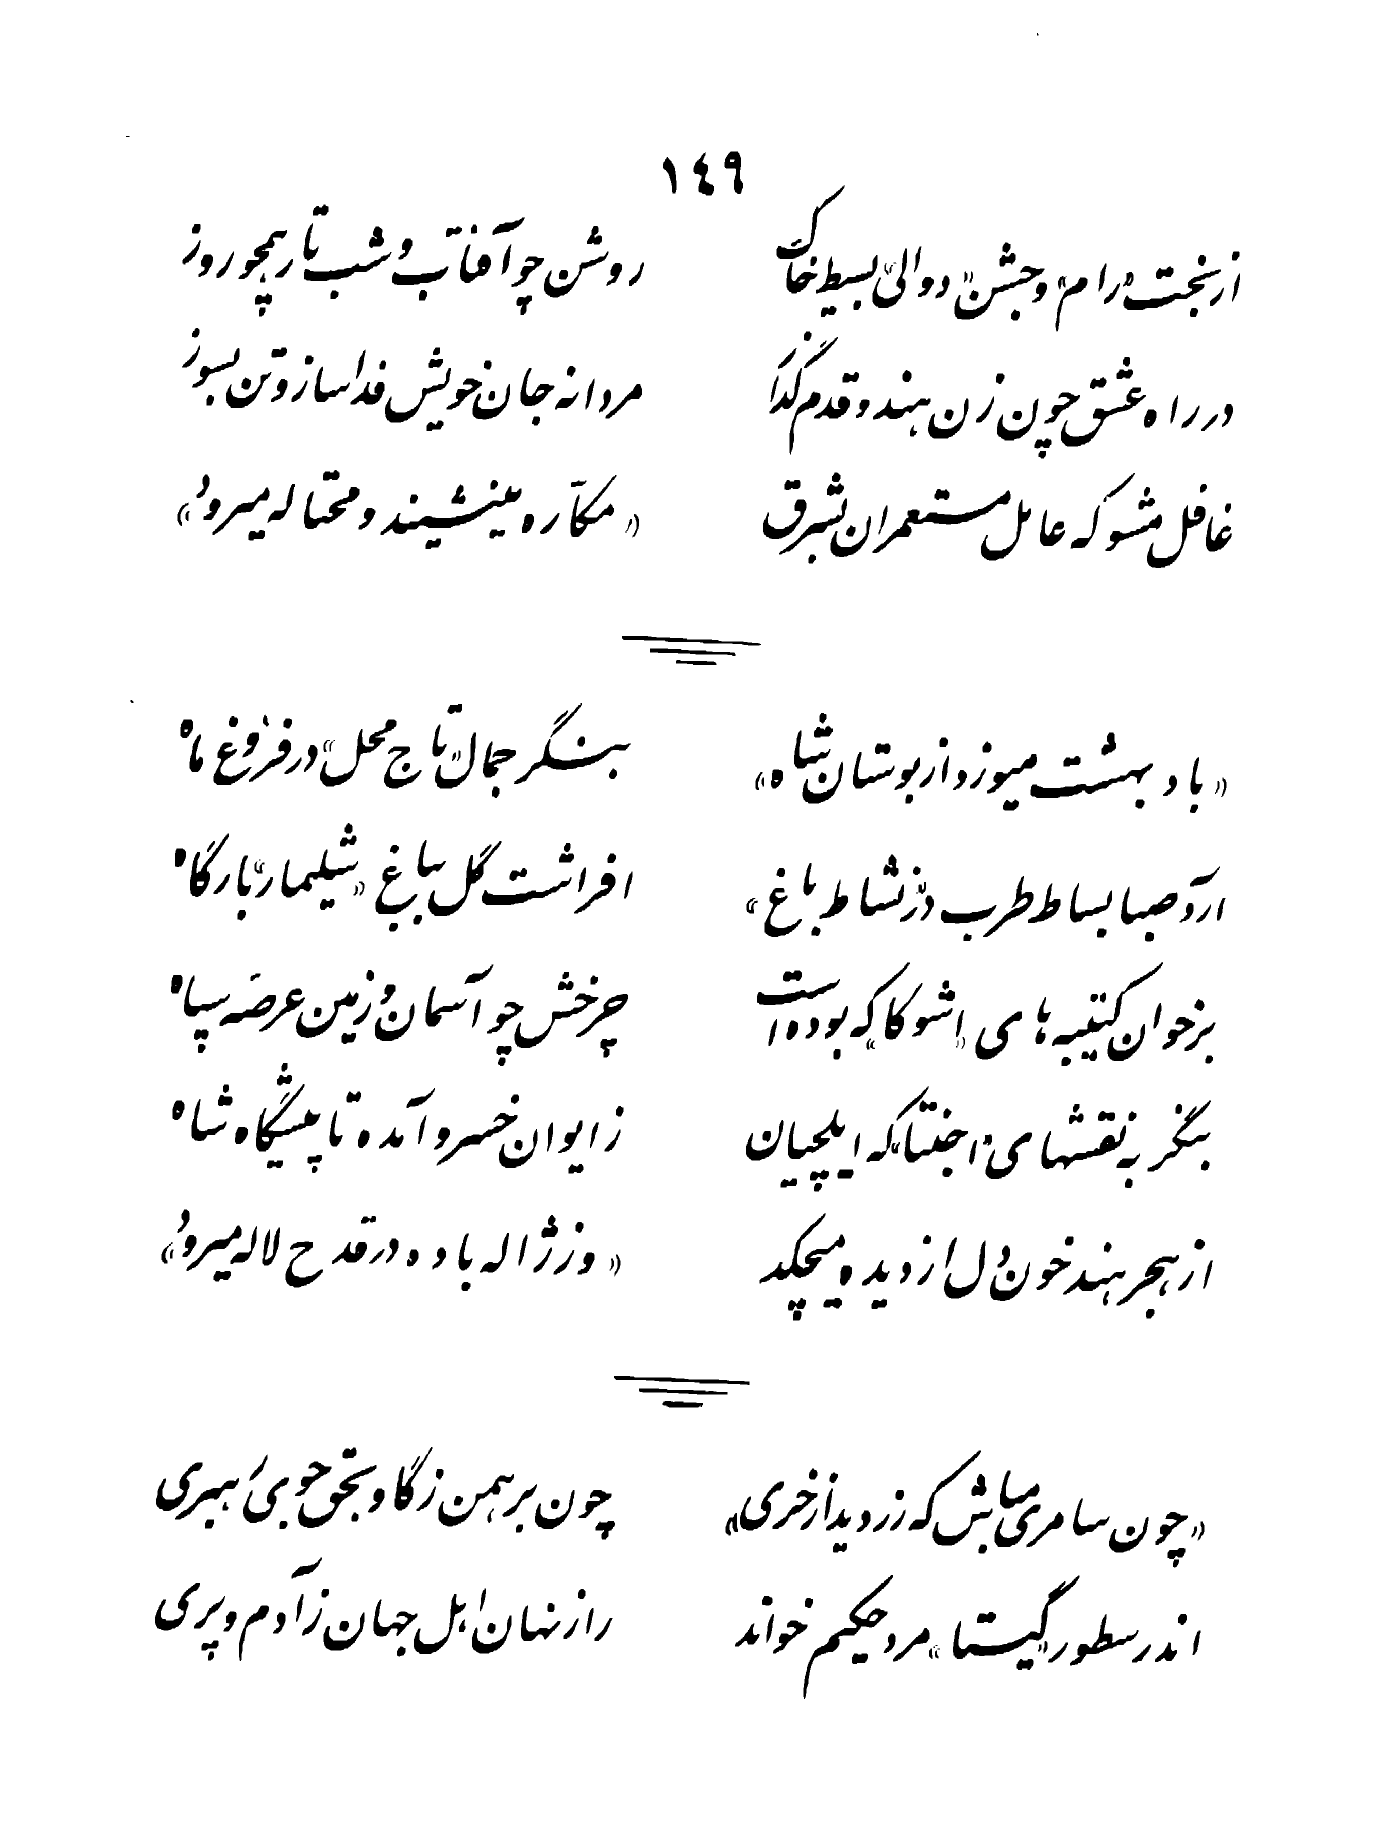 ١٤٩
از بخت «رام» و جشن «دوالی» بسیط خاک
روشن چو آفتاب و شب تار همچو روز
در راه عشق چون زن هندو قدم گذار
مردانه جان خویش فدا ساز و تن بسوز
غافل مشو که عامل مستعمران بشرق
«مکاره مینشیند و محتاله میرود»
«باد بهشت میوزد از بوستان شاه»
بنگر جمال «تاج محل» در فروغ ماه
آرد صبا بساط طرب در «نشاط باغ»
افراشت گل بباغ «شلیمار» بارگاه
برخوان کتیبه‌های «اشوکا» که بوده است
چرخش چو آسمان و زمین عرضه سپاه
بنگر به نقشهای «اجنتا» که ایلچیان
ز ایوان خسرو آمده تا پیشگاه شاه
از هجر هند خون دل از دیده میچکد
«وز ژاله باده در قدح لاله میرود»
«چون سامری مباش که زر دید از خری»
چون برهمن ز گاو بحق جوی رهبری
اندر سطور «گیتا» مرد حکیم خواند
راز نهان اهل جهان ز آدم و پری